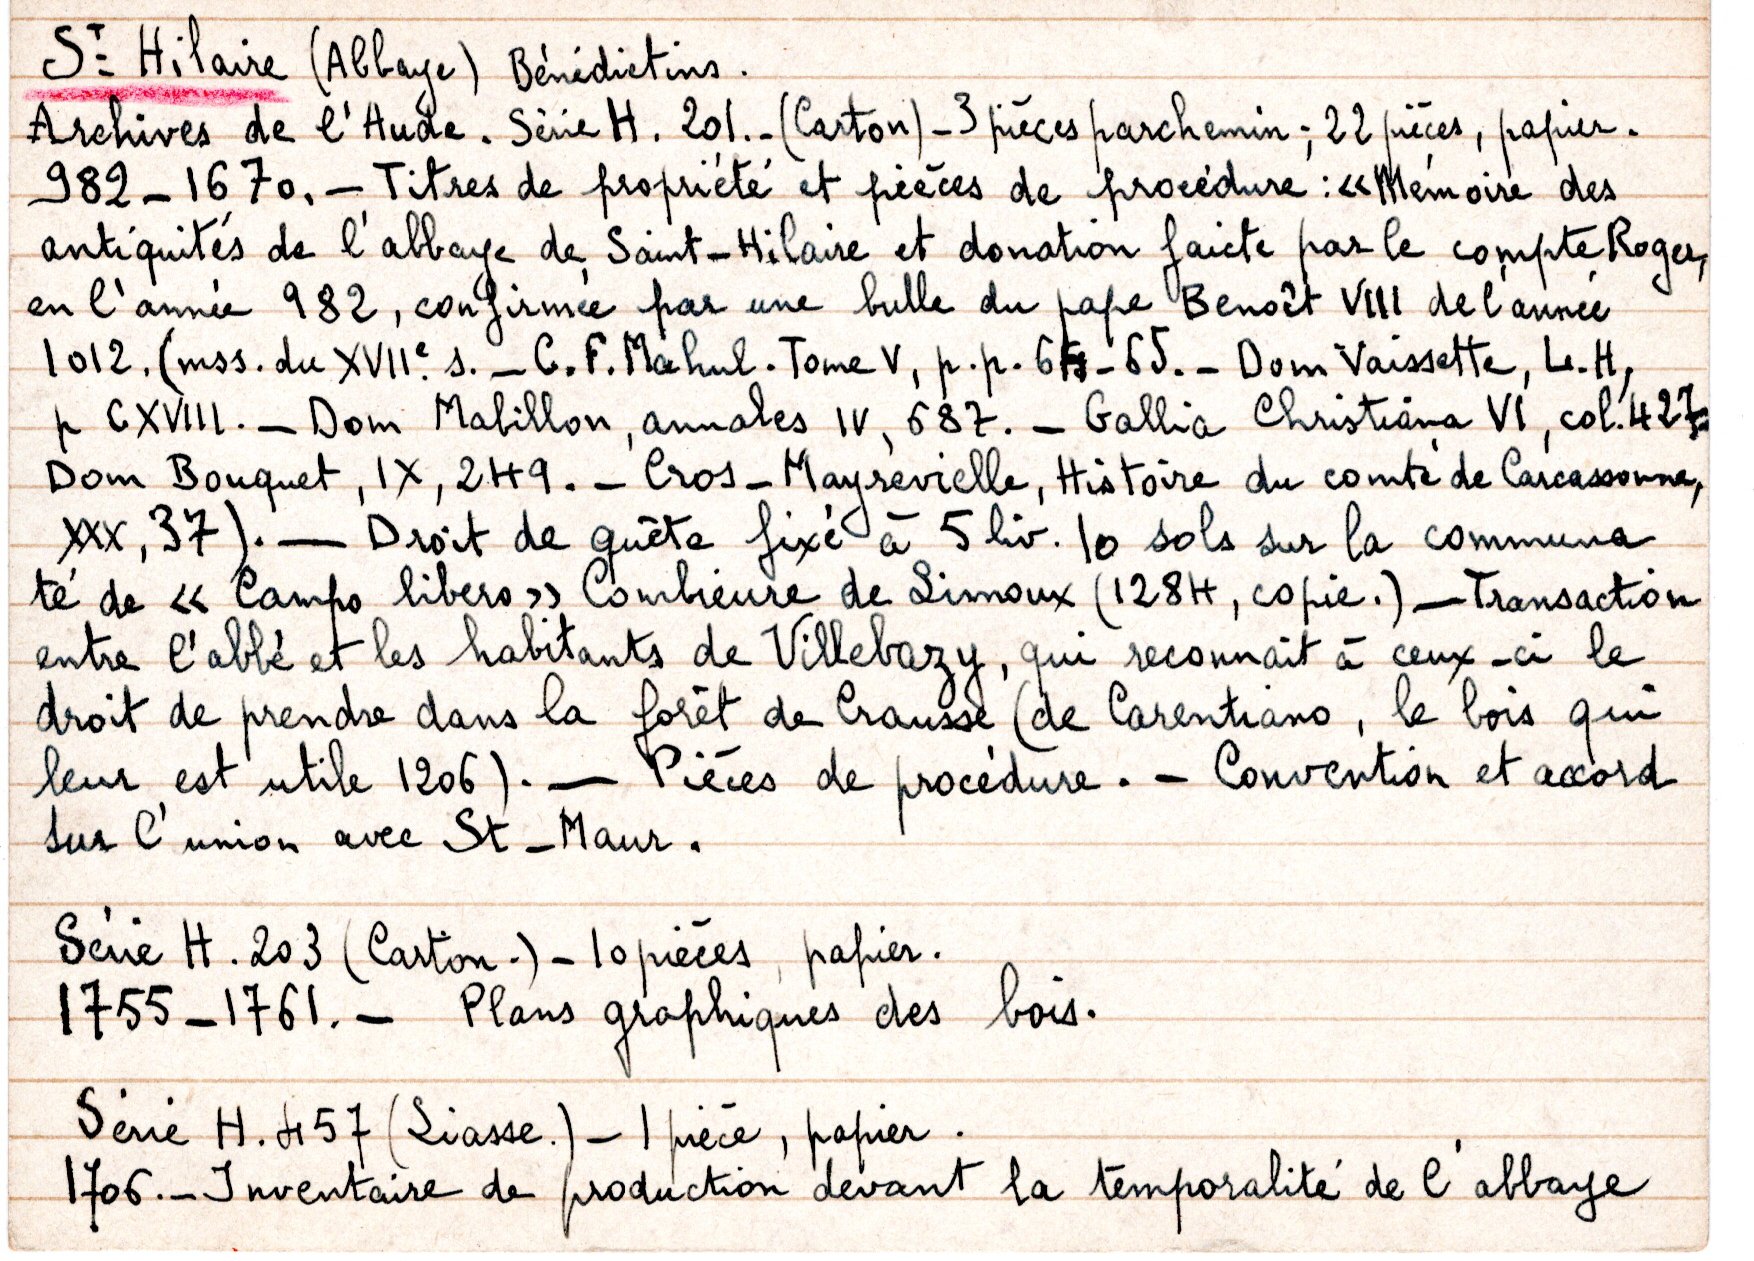 St Hilaire (Abbaye) Bénédictins.
Archives de l'Aude. Série H. 201. - (Carton) - 3 pièces parchemin; 22 pièces, papier.
982 - 1670. - Titres de propriété et pièces de procédure : « Mémoire des
antiquités de l'abbaye de Saint-Hilaire et donation faicte par le compte Roger,
en l'année 982, confirmée par une bulle du pape Benoît VIII de l'année
1012. (mss. du XVIIe. s. - C. F. Mahul. Tome V, p.p. 64-65. - Dom Vaissette, L. H,
p CXVIII. - Dom Mabillon, annales IV, 687. - Gallia Christiana VI, col. 427-
Dom Bouquet, IX, 249. - Cros-Mayrevielle, Histoire du comté de Carcassonne,
XXX, 37). - Droit de quête fixé à 5 liv. 10 sols sur la communa
té de « Campo libero » Combieure de Limoux (1284, copie.) - Transaction
entre l'abbé et les habitants de Villebazy, qui reconnait à ceux-ci le
droit de prendre dans la forêt de Crausse (de Carentiano, le bois qui
leur est utile 1206). - Pièces de procédure. - Convention et accord
sur l'union avec St-Maur.
Série H. 203 (Carton.) - 10 pièces, papier.
1755 - 1761. - Plans graphiques des bois.
Série H. 457 (Liasse.) - 1 pièce, papier.
1706. - Inventaire de production devant la temporalité de l'abbaye